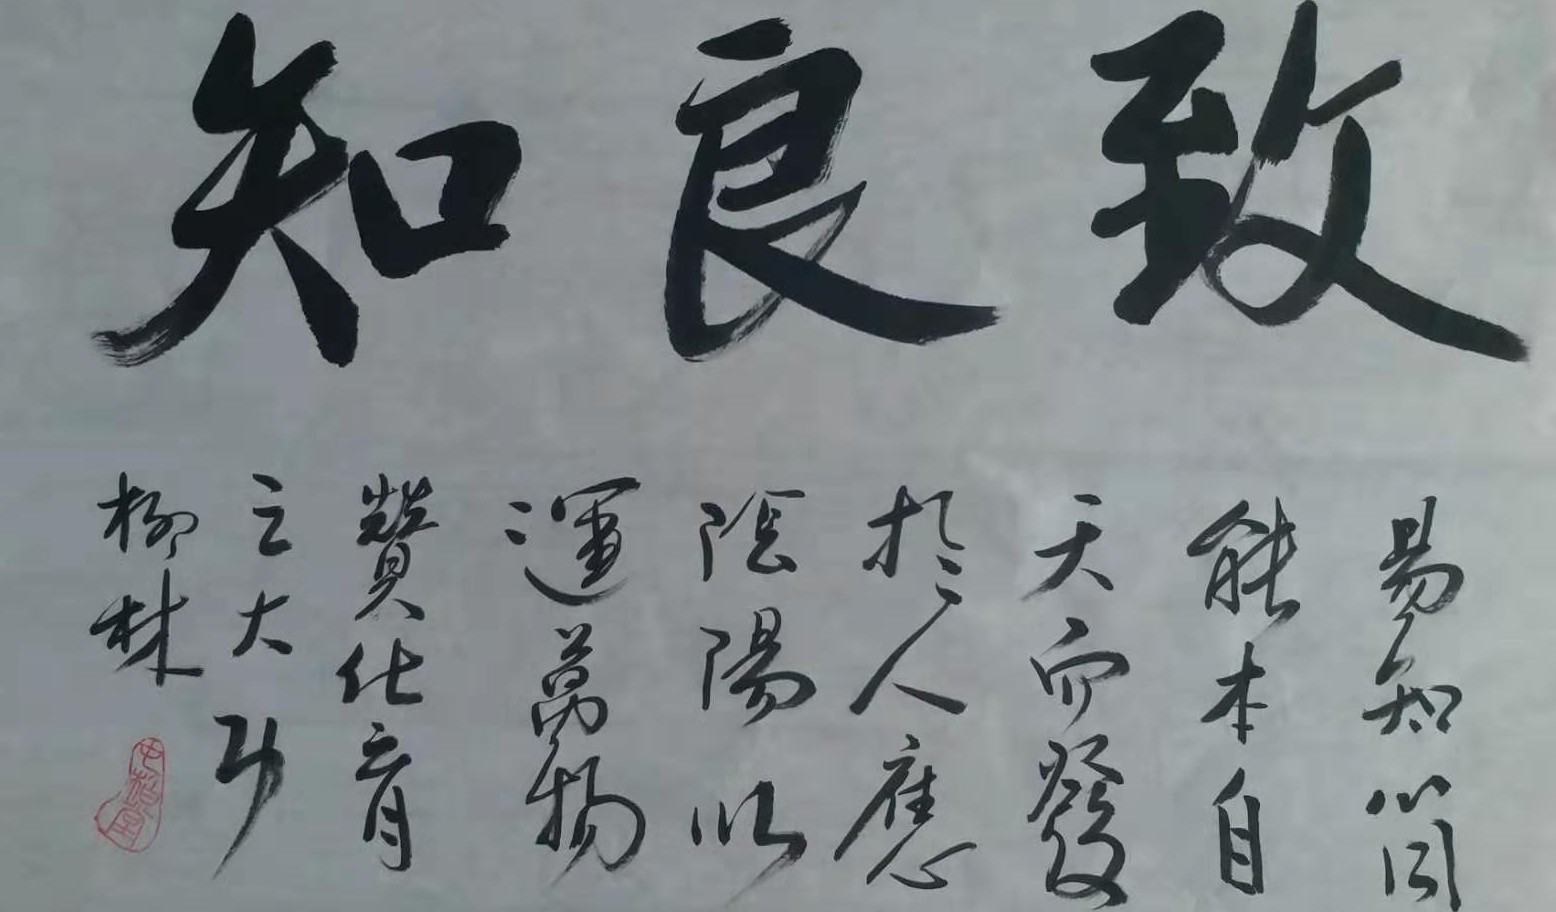 致良知
易知簡
能本自
天而發
於人應
陰陽以
運萬物
贊化育
之大
柳林